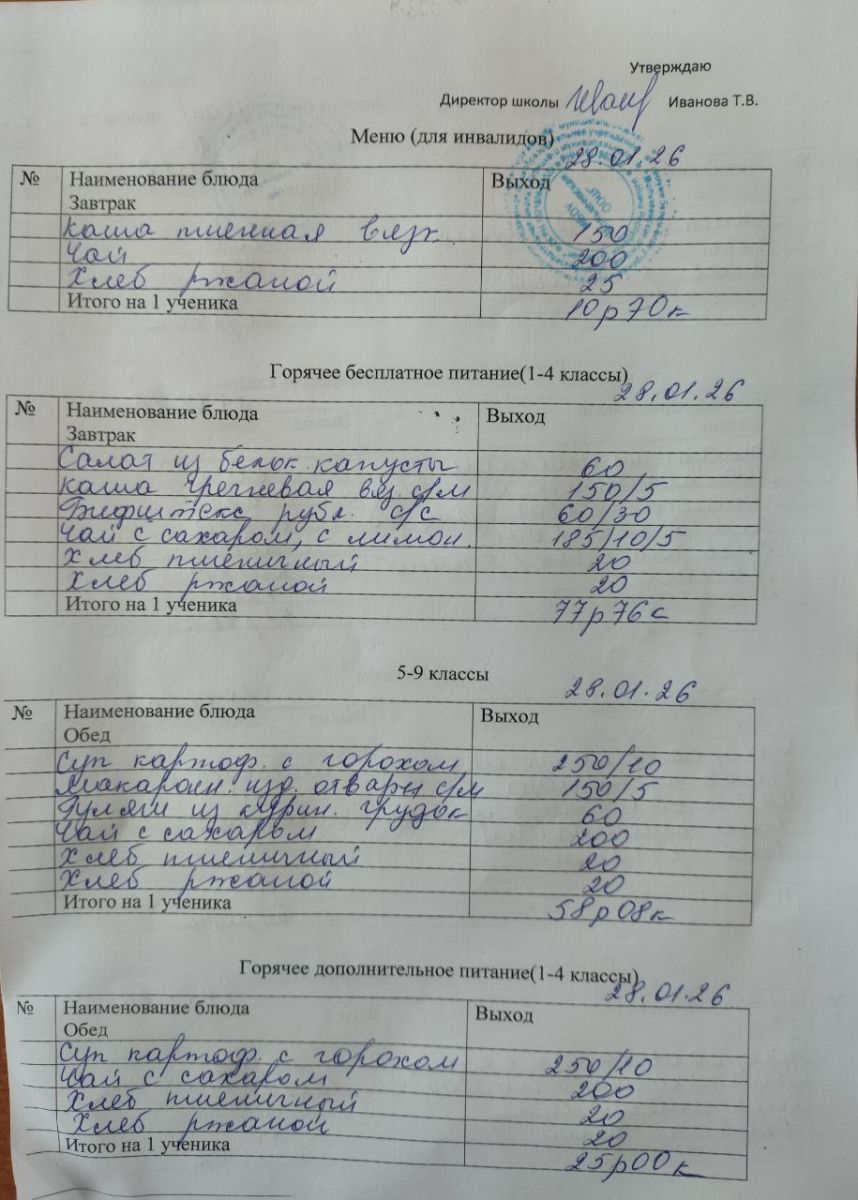 Утверждаю
Директор школы Иванова Т.В.
Меню (для инвалидов)
28.01.26
№ Наименование блюда Выход
Завтрак
Каша пшенная вязк. 150
Чай 200
Хлеб ржаной 25
Итого на 1 ученика 10р70к
Горячее бесплатное питание(1-4 классы)
28.01.26
№ Наименование блюда Выход
Завтрак
Салат из белок. капусты 60
Каша гречневая вяз с/м 150/5
Бифштекс рубл. с/с 60/30
Чай с сахаром, с лимон. 185/10/5
Хлеб пшеничный 20
Хлеб ржаной 20
Итого на 1 ученика 77р76с
5-9 классы
28.01.26
№ Наименование блюда Выход
Обед
Суп картоф. с горохом 250/10
Макарон. изд. отварн с/м 150/5
Гуляш из курин. грудок 60
Чай с сахаром 200
Хлеб пшеничный 20
Хлеб ржаной 20
Итого на 1 ученика 58р08к
Горячее дополнительное питание(1-4 классы)
28.01.26
№ Наименование блюда Выход
Обед
Суп картоф. с горохом 250/10
Чай с сахаром 200
Хлеб пшеничный 20
Хлеб ржаной 20
Итого на 1 ученика 25р00к